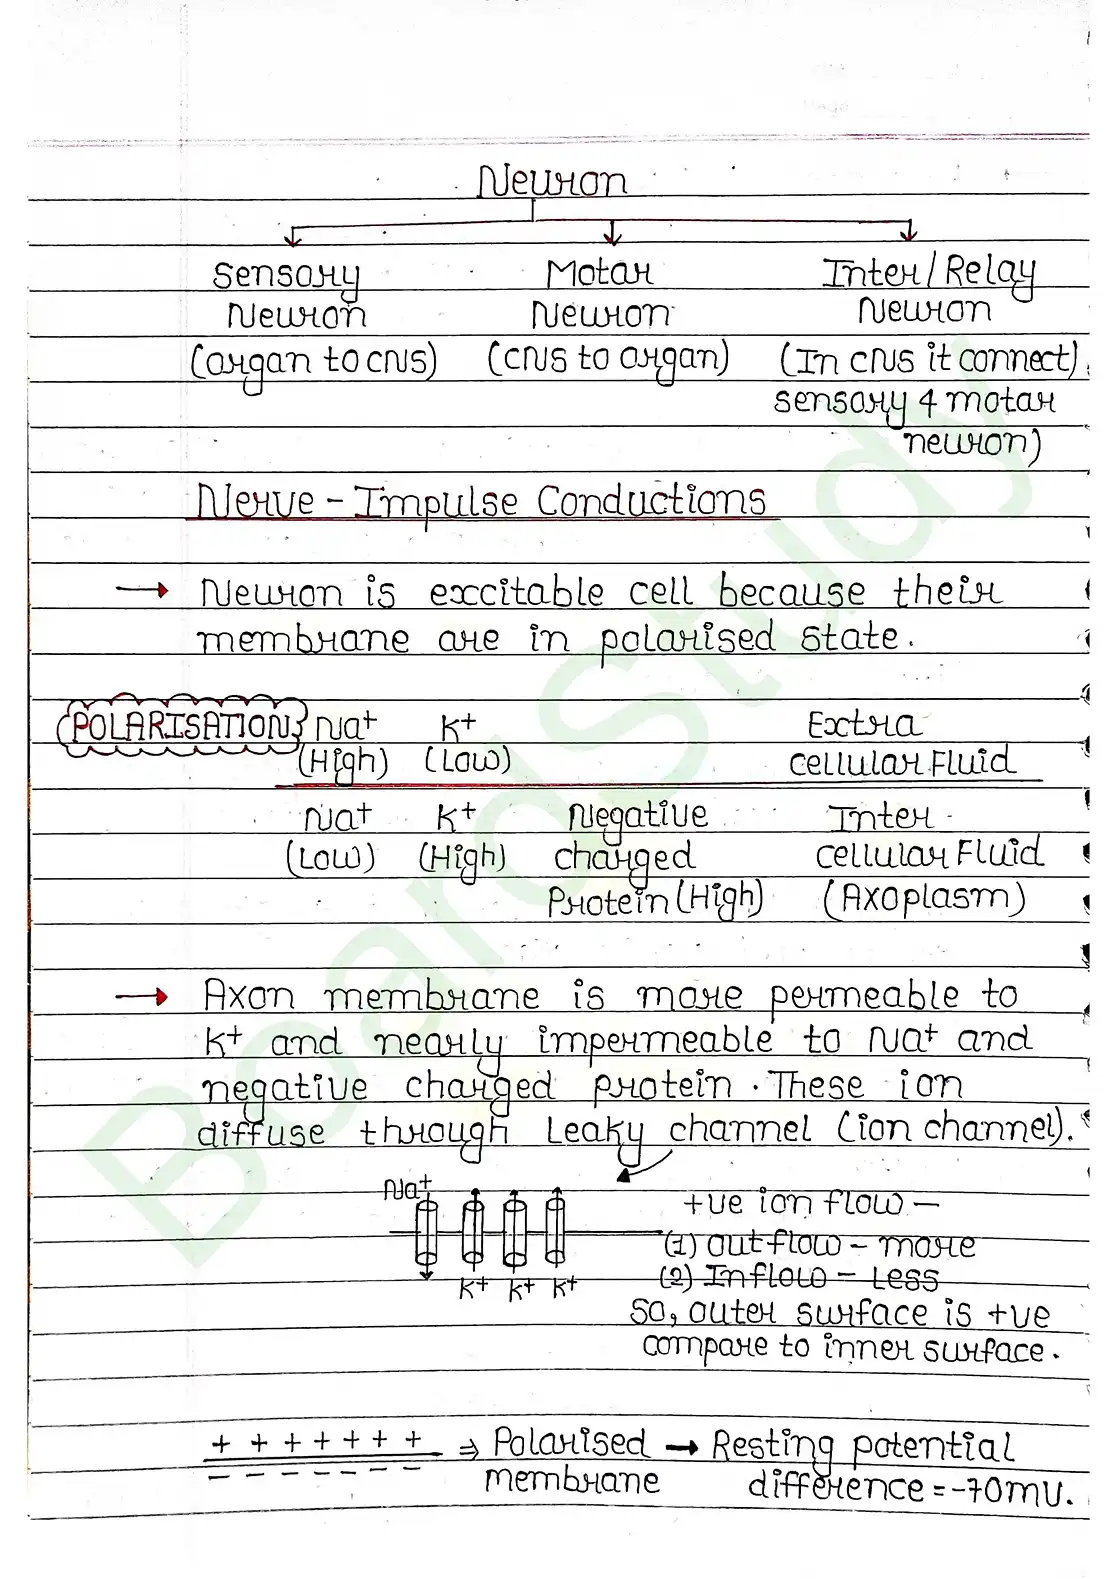 Neuron
Sensory Motor Inter/Relay
Neuron Neuron Neuron
(organ to CNS) (CNS to organ) (In CNS it connect)
sensory & motor
neuron)
Nerve - Impulse Conductions
→ Neuron is excitable cell because their
membrane are in polarised state.
POLARISATION Na+ K+ Extra
(High) (Low) cellular Fluid
Na+ K+ Negative Inter
(Low) (High) charged cellular Fluid
Protein (High) (Axoplasm)
→ Axon membrane is more permeable to
K+ and nearly impermeable to Na+ and
negative charged protein. These ion
diffuse through Leaky channel (ion channel).
Na+
+ve ion flow -
(1) out flow - more
K+ K+ K+ (2) Inflow - Less
So, outer surface is +ve
compare to inner surface.
+ + + + + + + ⇒ Polarised → Resting potential
- - - - - - - membrane difference = -70mV.
BoardStudy